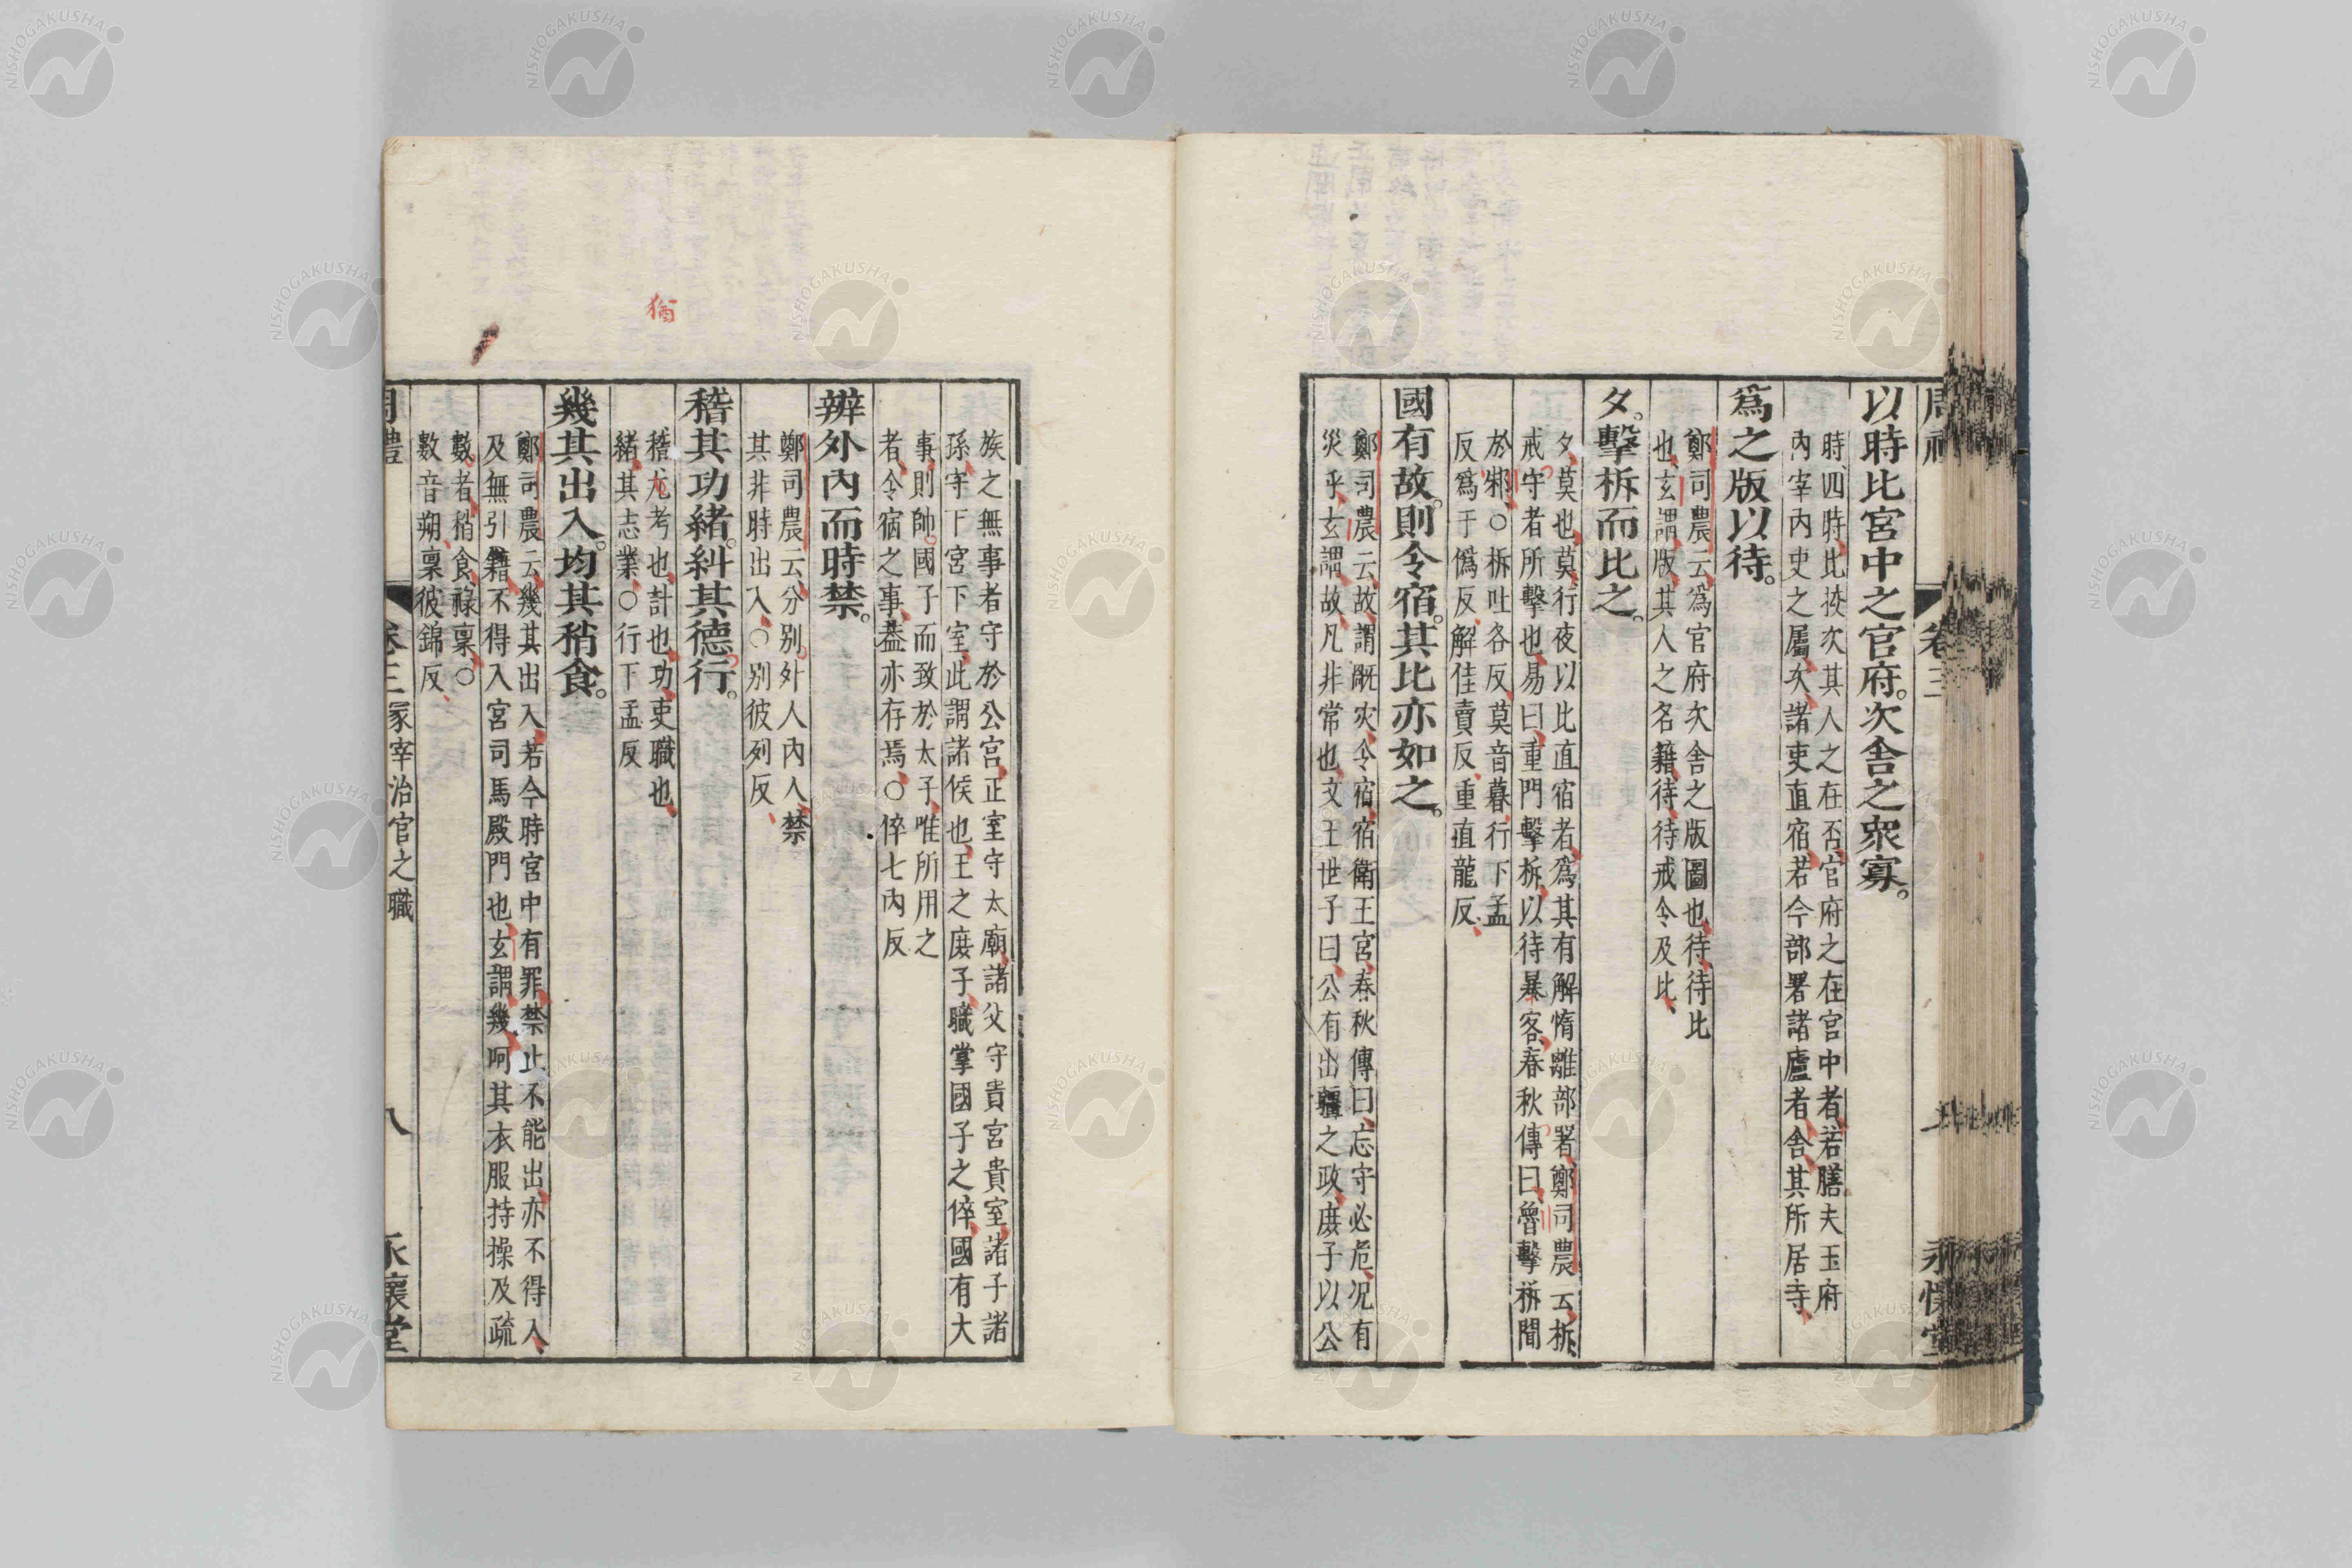 以時比宮中之官府。次舍之衆寡。
時、四時、比挍次其人之在否、官府之在宮中者、若膳夫玉府
內宰內史之屬、次、諸吏直宿、若今部署諸廬者、舍、其所居寺、
爲之版以待。
鄭司農云、爲官府次舍之版圖也、待、待比
也、玄謂版、其人之名籍、待、待戒令及比、
夕。擊柝而比之。
夕、莫也、莫、行夜以比直宿者、爲其有解惰離部署、鄭司農云、柝、
戒守者所擊也、易曰、重門擊柝、以待暴客、春秋傳曰、魯擊柝聞
於邾、○柝吐各反、莫音暮、行下孟
反爲于僞反、解佳賣反、重直龍反、
國有故。則令宿。其比亦如之。
鄭司農云、故、謂旤灾、令宿、宿衛王宮、春秋傳曰、忘守必危、况有
災乎、玄謂故、凡非常也、文王世子曰、公有出疆之政、庶子以公
族之無事者守於公宮、正室守太廟、諸父守貴宮貴室、諸子諸
孫、守下宮下室、此謂諸侯也、王之庶子、職掌國子之倅、國有大
事、則帥國子而致於太子、唯所用之
者、令宿之事、蓋亦存焉、○倅七內反
辨外內而時禁。
鄭司農云、分別外人內人、禁
其非時出入、○別彼列反、
稽其功緒。糾其德行。
稽、尤考也、計也、功、吏職也、
緒、其志業、○行下孟反
幾其出入。均其稍食。
鄭司農云、幾其出入、若今時宮中有罪禁止不能出、亦不得入、
及無引籍、不得入宮司馬殿門也、玄謂、幾、呵其衣服持操及疏
數者、稍食、祿稟、○
數音朔、稟彼錦反、
卷三 冢宰治官之職
八
永懷堂
猶